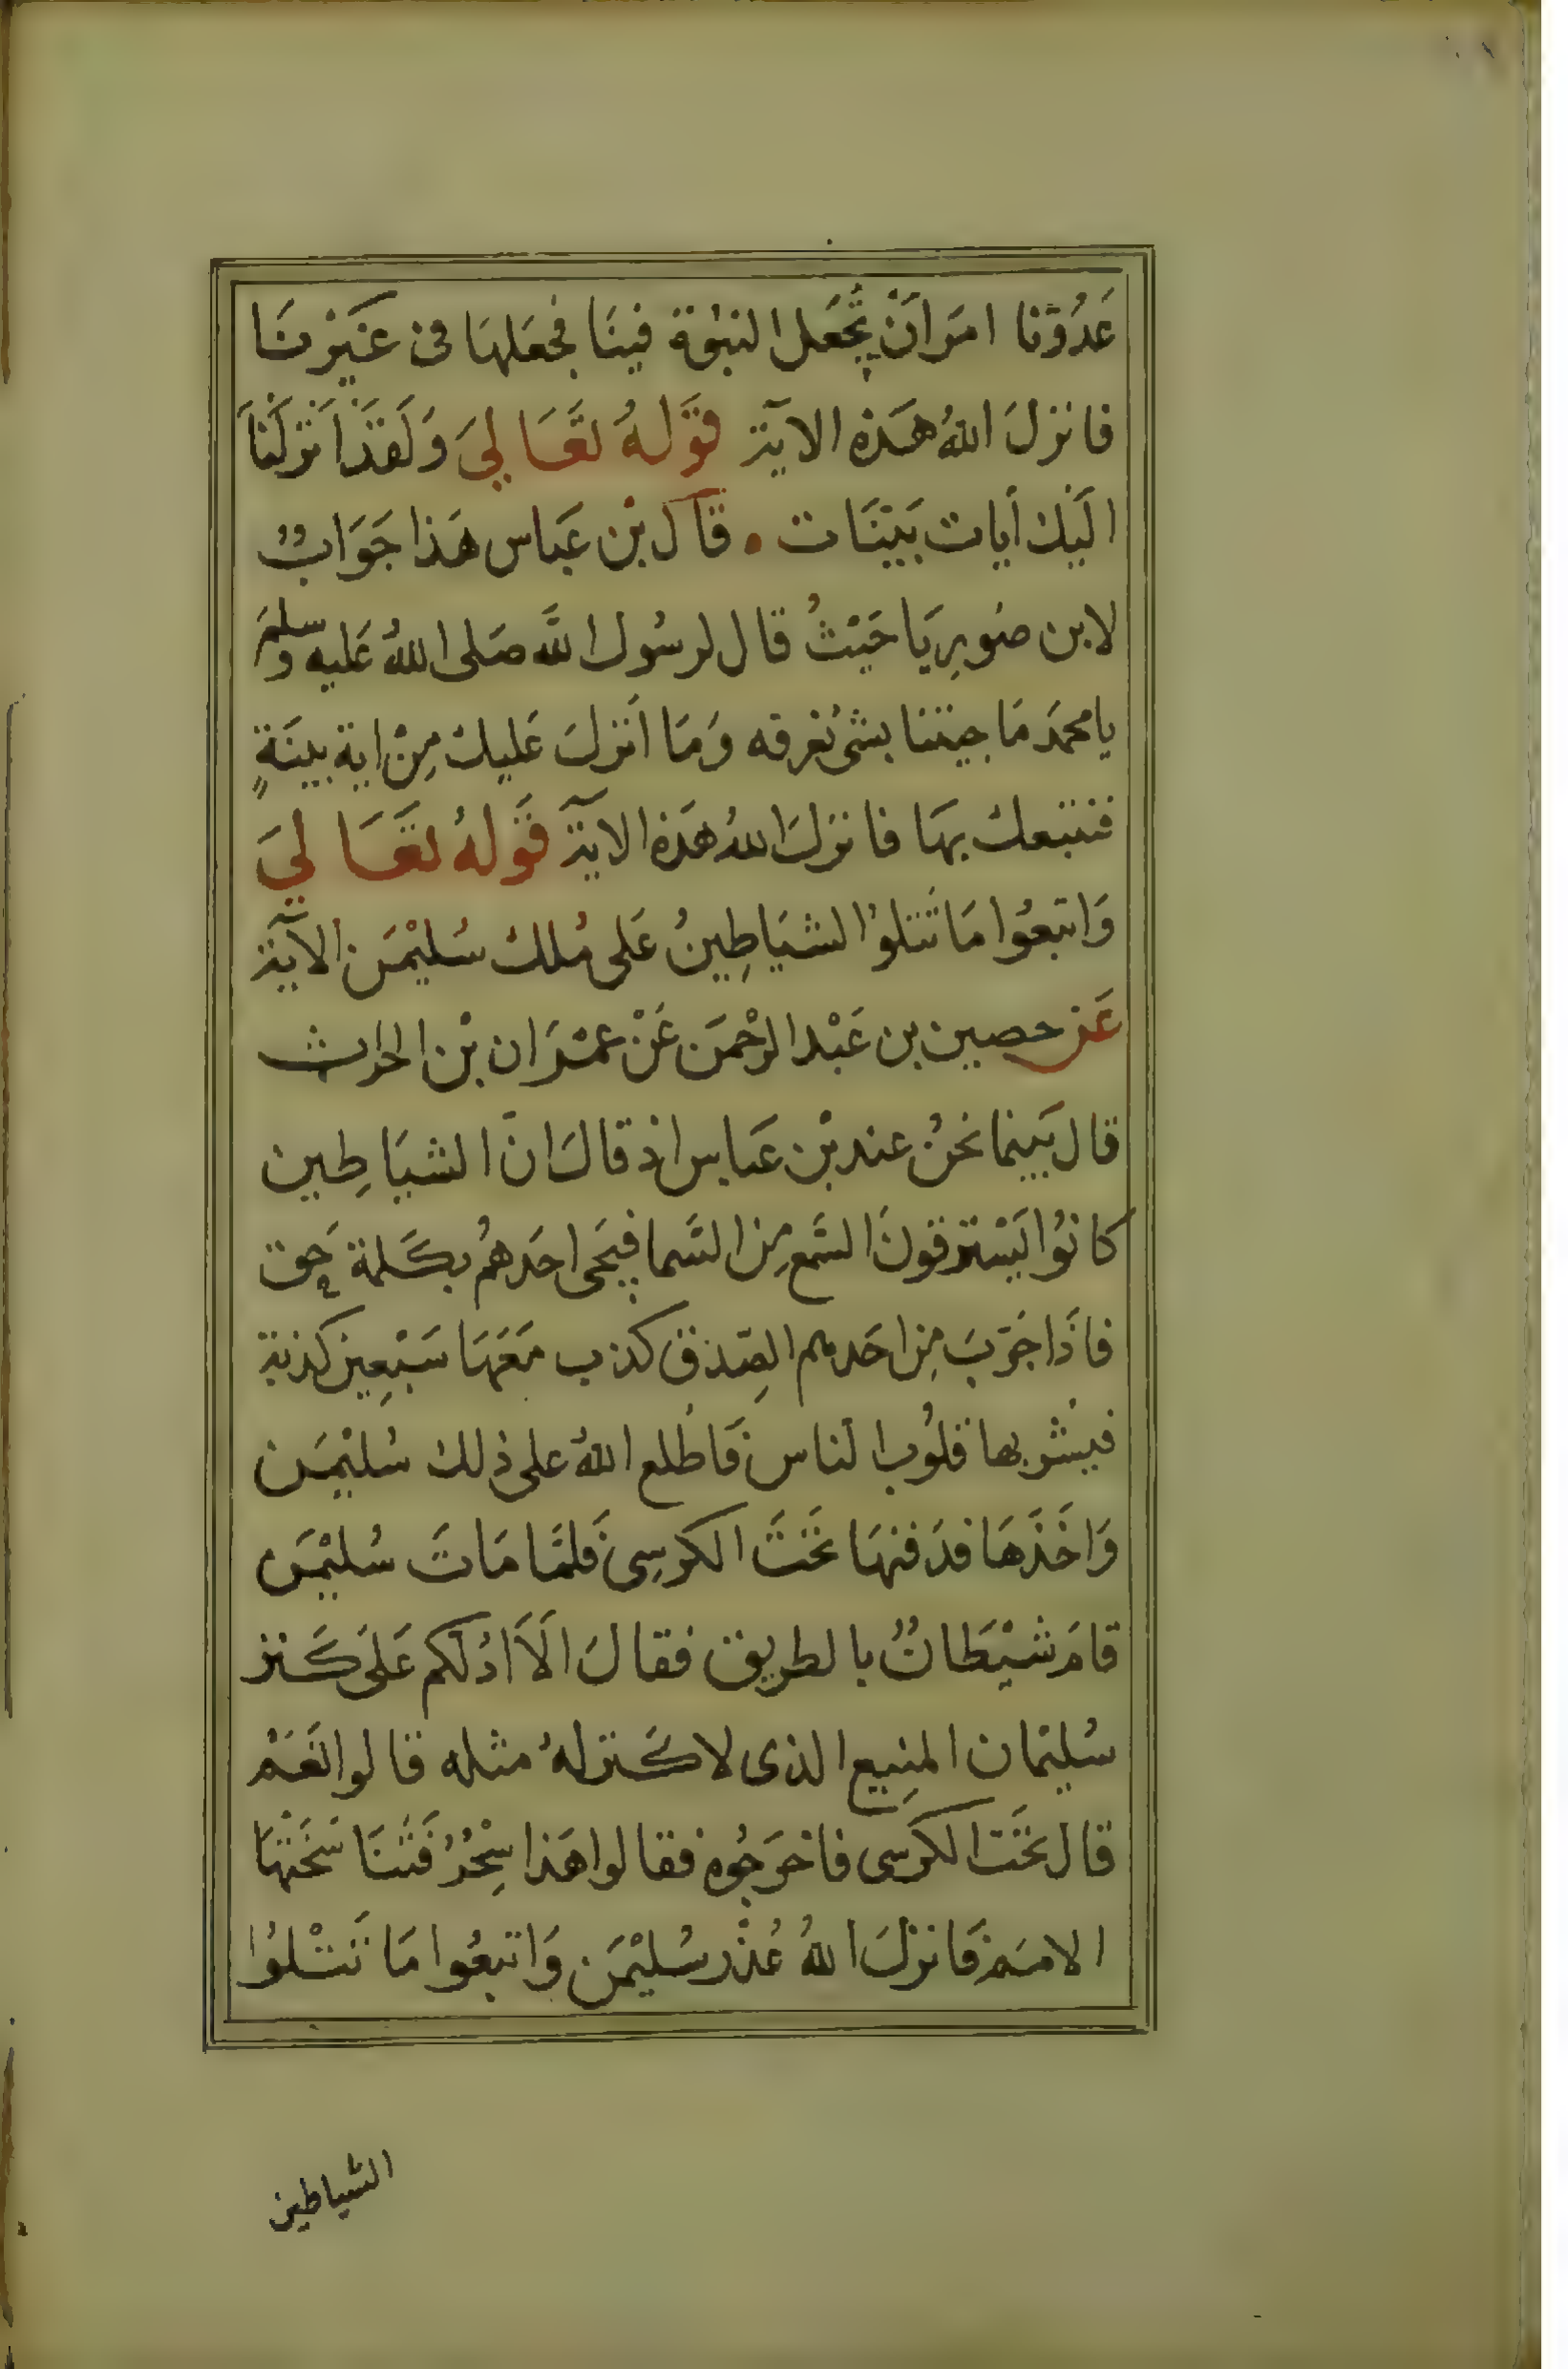 عَدُوّنا امَرَ اَنْ يُّجعَل النبوة فينَا فجعَلهَا فى غَيْرِنَا
فانزلَ اللهُ هَذه الايَة قوَلهُ تعَالىَ وَلَقَدْ اَنْزَلْنَا
الَيك اٰيات بَيّنَات . قاَل بْن عَباس هَذا جَوَابٌ
لابن صُورِيَا حَيْثُ قال لرسُول الله صَلى اللهُ عَليه وَسلم
يا محمَد مَا جيتنا بشى نُعرفه وَمَا اَنزلَ عَليكَ مِنْ اية بينَةٍ
فنتبعك بهَا فانزلَ اللهُ هَذه الايَة قوَلهُ تعَالىَ
وَاتبعُوا مَا تَتلوُا الشيَاطِينُ عَلى مُلك سُليْمَن الآيَة
عَن حصين بن عَبْد الرحْمَن عَنْ عمْرَان بْن الحرث
قال بَيْنما نحْنُ عند بْن عَباس اذ قالَ انّ الشيَاطِين
كانوُا يَسْترقونَ السَّمع مِن السَّما فيَجى احَدهُم بكَلمة حَق
فاذَا جَرّبَ مِن احَدهم الصِدْق كذب مَعَهَا سَبْعِين كذبَة
فيُشربها قلوُب الناس فَاطلع اللهُ على ذلك سُليْمَن
وَاخَذَهَا فدَفنهَا تَحْتَ الكرسِى فَلمَّا مَاتَ سُليْمَن
قامَ شيْطَانٌ بالطريق فقالَ الَا ادُلّكم عَلى كَنز
سُليْمان المنِيع الذى لا كَنز لهُ مثله قالوا نَعَمْ
قال تَحْتَ الكرسى فاخرَجُوه فقالوا هَذا سِحْرٌ فَتنَاسَخَتْهَا
الامَم فَانزلَ اللهُ عُذْر سُليْمَن وَاتبعُوا مَا تَتْلوُا
الشياطين